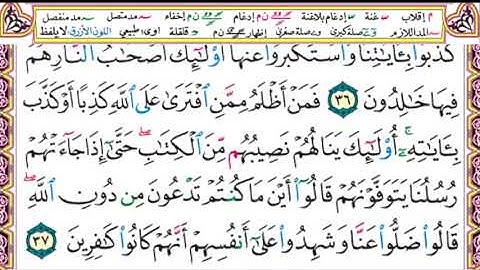 م إقلاب غنة إدغام بلاغنة ن م إدغام ن م إخفاء مد متصل مد منفصل
المد اللازم صلة كبرى صلة صغرى إظهار ن م قلقلة اوى طبيعي اللون الأزرق لا يلفظ
كَذَّبُوا بِـَٔايَٰتِنَا وَاسْتَكْبَرُوا عَنْهَا أُولَٰٓئِكَ أَصْحَٰبُ النَّارِ هُمْ
فِيهَا خَٰلِدُونَ ٣٦ فَمَنْ أَظْلَمُ مِمَّنِ افْتَرَىٰ عَلَى اللَّهِ كَذِبًا أَوْ كَذَّبَ
بِـَٔايَٰتِهِۦٓ ۚ أُولَٰٓئِكَ يَنَالُهُمْ نَصِيبُهُم مِّنَ الْكِتَٰبِ ۖ حَتَّىٰٓ إِذَا جَآءَتْهُمْ
رُسُلُنَا يَتَوَفَّوْنَهُمْ قَالُوٓا أَيْنَ مَا كُنتُمْ تَدْعُونَ مِن دُونِ اللَّهِ ۖ
قَالُوا ضَلُّوا عَنَّا وَشَهِدُوا عَلَىٰٓ أَنفُسِهِمْ أَنَّهُمْ كَانُوا كَٰفِرِينَ ٣٧